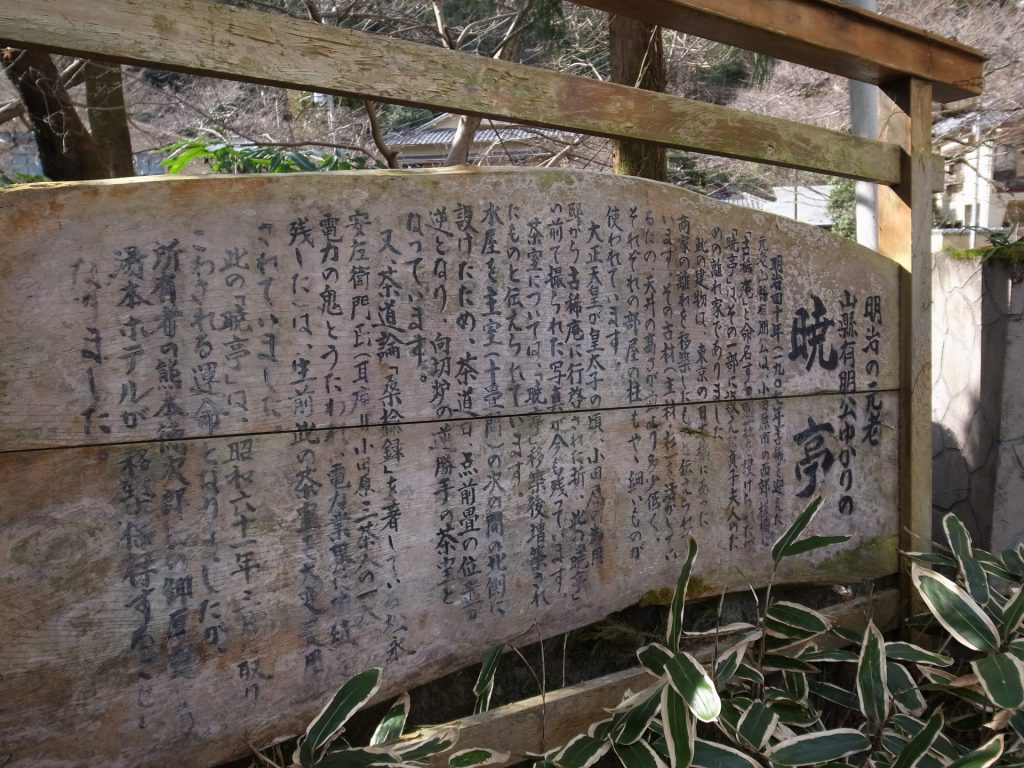 明治の元老
山縣有朋公ゆかりの
暁亭
明治四十年(一九〇七年)
元老山縣有朋公は、小田原市の西部、板橋に
「古稀庵」と命名す
「暁亭」はその一部に
めの離れ家でありました
此の建物は、東京の日本橋にあった
商家の離れを移築したものと伝えられて
います。その古材(主材
それぞれの部屋の柱もやゝ細いものが
使われています。
大正天皇が皇太子の頃、小田原の御用
邸から古稀庵に行啓された折、此の暁亭
の前で撮られた写真が今も残っています。
茶室については、暁亭移築後増築され
たものと伝えられています。
水屋を主室(十畳間)の次の間の北側に
設けたため、茶道口、点前畳の位置が
逆となり、向切炉の逆勝手の茶室と
なっています。
又、茶道論「桑桧録」を著している松永
安左衛門氏(耳庵=小田原三茶人の一人
電力の鬼とうたわれ、電力業界に
残した)は、生前此の茶室を大変
されていました。
此の「暁亭」は、昭和六十一年三月取り
こわされる運命となりましたが、
所有者の熊本徳次郎との御厚意
湯本ホテルが移築保存すること
なりました。